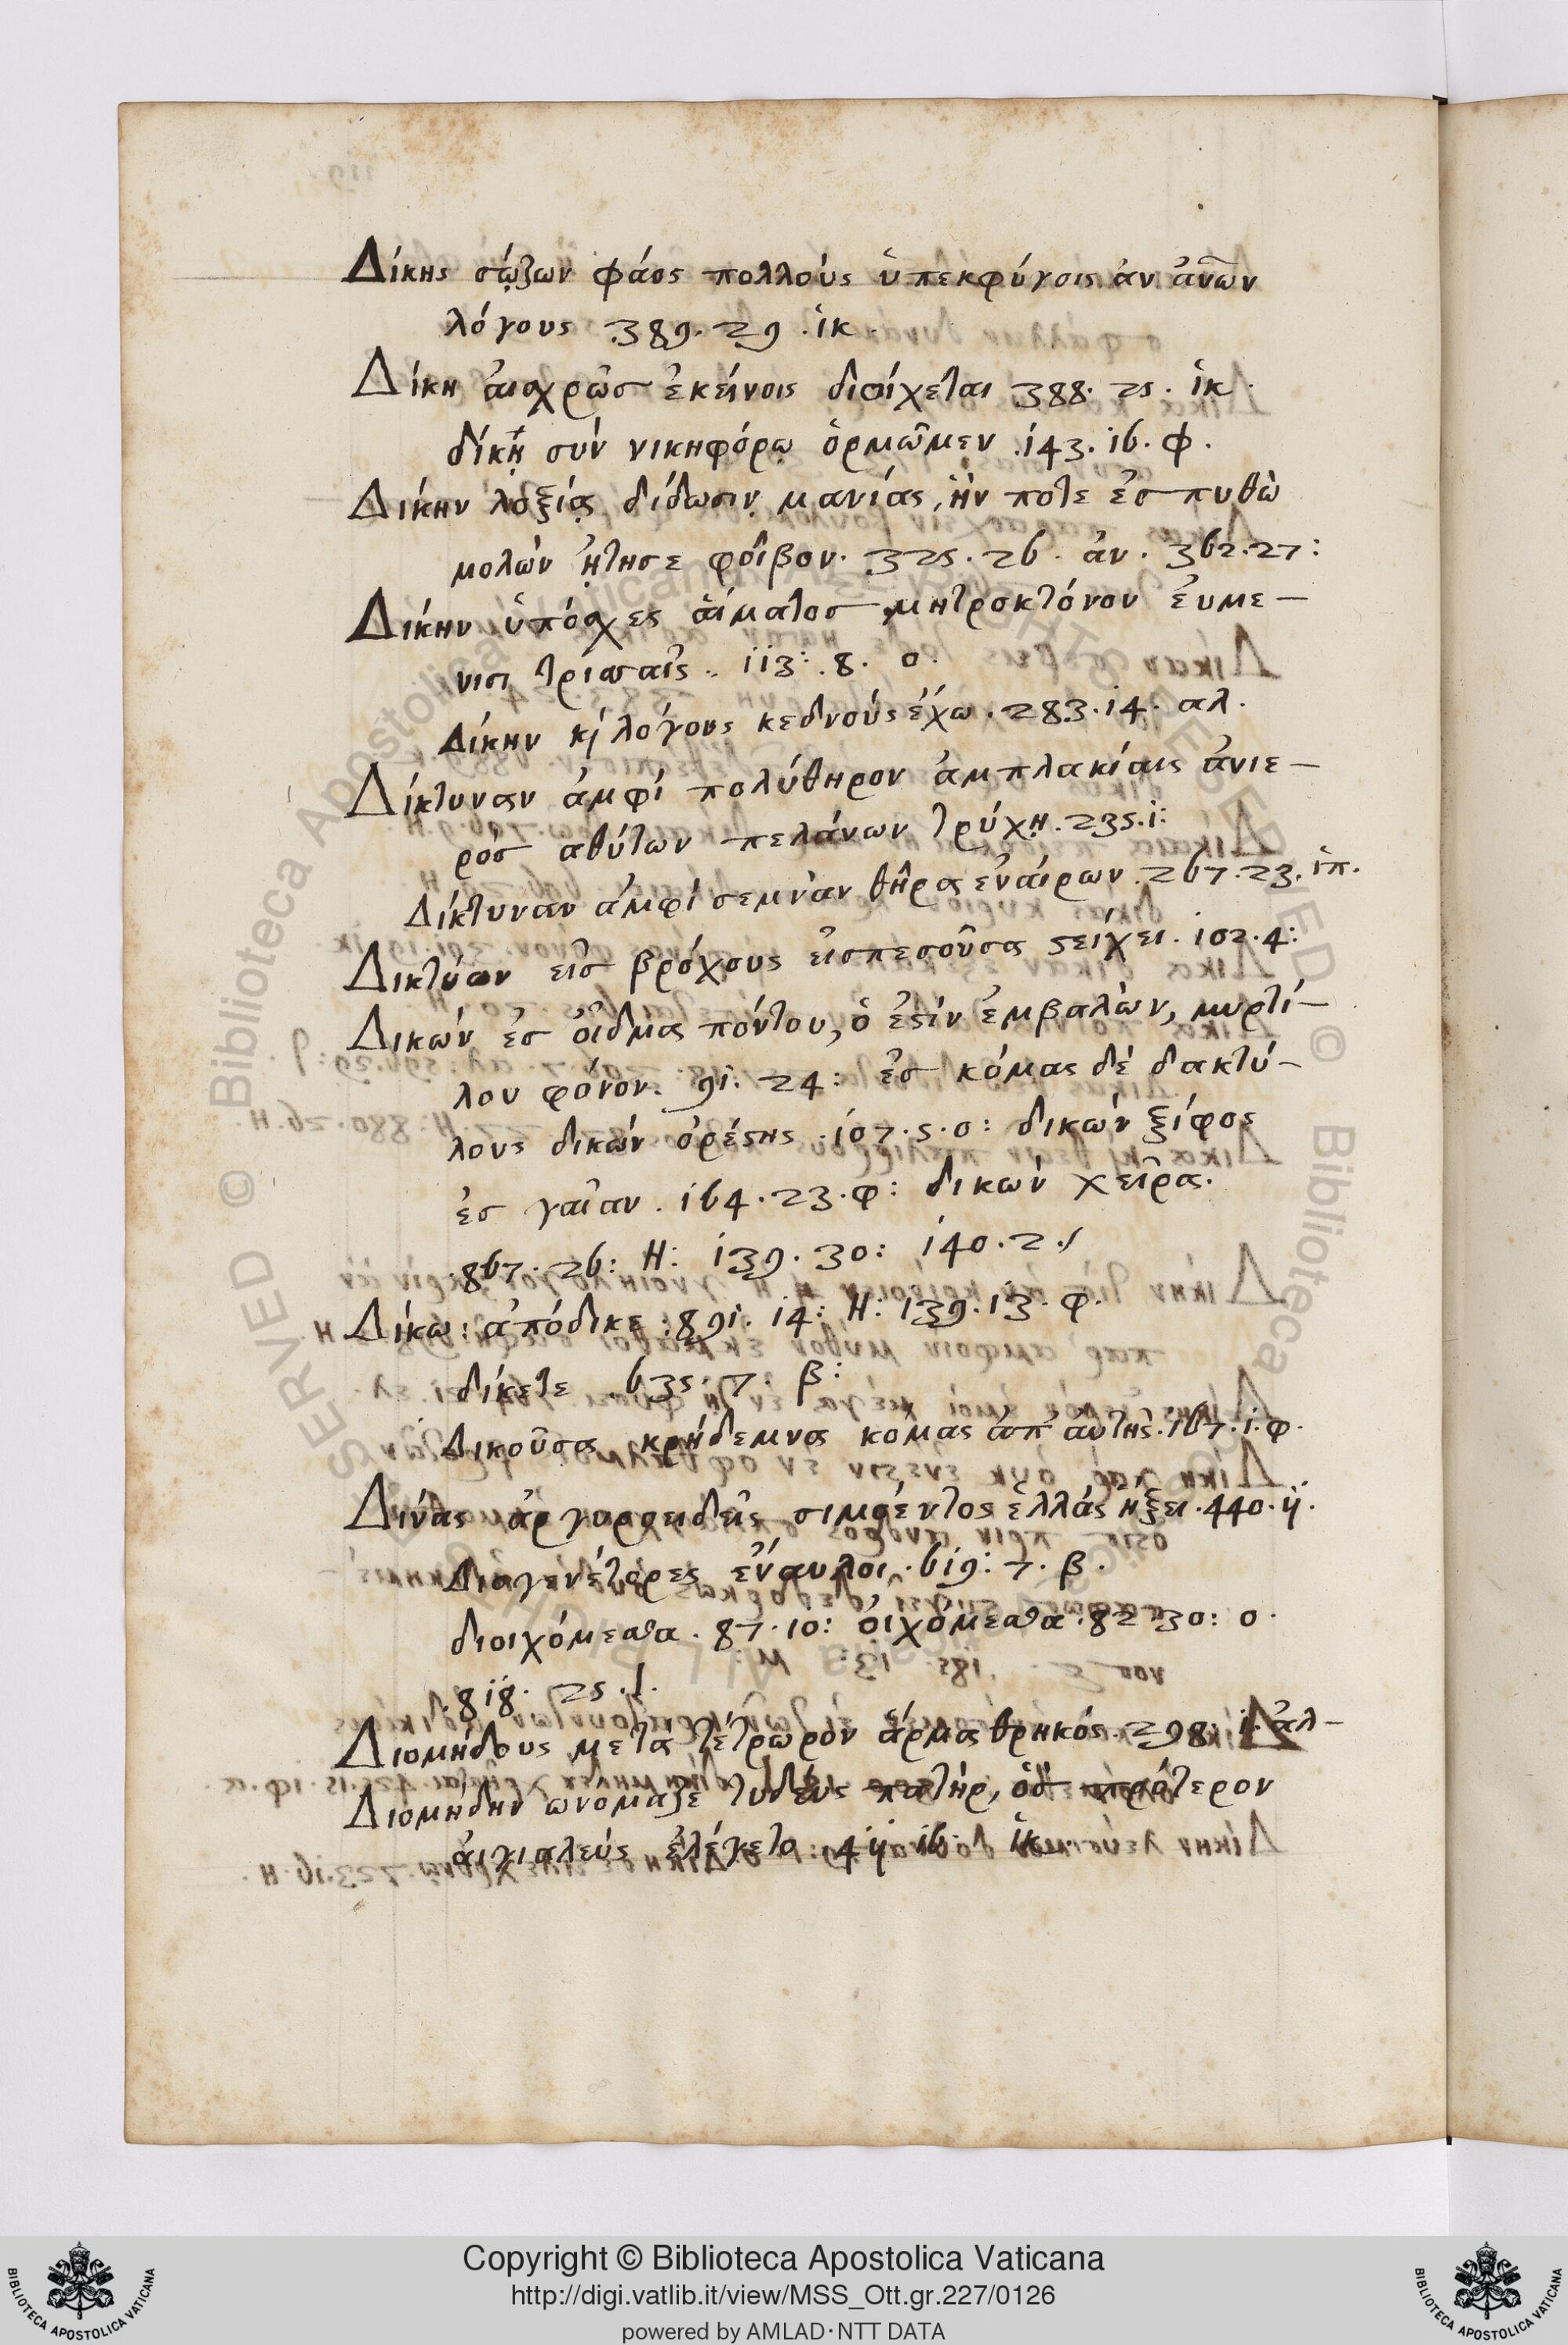 Δίκης σῴζων φάος πολλοὺς ὑπεκφύγοις ἂν ἀνῶν
λόγους 389. 29. ἱκ.
Δίκη αἰσχρῶσ ἐκείνοις διοίχεται 388. 25. ἱκ.
δίκῃ σὺν νικηφόρῳ ὁρμῶμεν .143. 16. φ.
Δίκην λοξίᾳ δίδωσιν μανίας, ἥν ποτε ἐσ πυθὼ
μολὼν ᾔτησε φοῖβον. 325. 26. ἀν. 362. 27:
Δίκην ὑπόσχες αἵματοσ μητροκτόνον ἐυμε-
νισι τρισσαῖς. 113: 8. ο.
Δίκην κὶ λόγους κεδνοὺς ἔχω. 283. 14. αλ.
Δίκτυναν ἀμφὶ πολύθηρον ἀμπλακίαις ἀνιε-
ρόσ αθύτων πελάνων τρύχῃ. 235. 1:
Δίκτυναν ἀμφὶ σεμνὰν θῆρας ἐναίρων. 267. 23. ἱπ.
Δικτύων εἰσ βρόχους εἰσπεσοῦσα ϛείχει. 102. 4:
Δικὼν ἐσ οἶδμα πόντου, ὁ ἐϛὶν ἐμβαλὼν, μυρτί-
λου φόνον. 91. 24: ἐσ κόμας δὲ δακτύ-
λους δικὼν ὀρέϛης .107. 5. ο: δικὼν ξίφος
ἐσ γαῖαν. 164. 23. φ: δικὼν χεῖρα.
867. 26: Η: 139. 30: 140. 2.
Δίκω: ἀπόδικε: 891. 14: Η: 139. 13. φ.
δίκετε .635. 7. β:
Δικοῦσα κρήδεμνα κόμας ἀπ' ἀυτῆς. 167. 1. φ.
Δίνας ἀργυροειδεῖς σιμόεντος ἑλλὰς ἥξει. 440. 11.
Διογενέτορες ἔναυλοι. 619: 7. β.
διοιχόμεσθα. 87. 10: οἰχόμεσθα. 82. 30: ο.
818. 25.
Διομήδους μετὰ τέτρωρον ἅρμα θρηκός. 298. 1. ἀλ-
Διομήδην ωνόμαζε τυδεὺς πατὴρ, ὁσ πρότερον
ἀιγιαλεὺς ἐλέγετο 411. 16. ἱκ.
© Biblioteca Apostolica Vaticana
ALL RIGHTS RESERVED
Copyright © Biblioteca Apostolica Vaticana
http://digi.vatlib.it/view/MSS_Ott.gr.227/0126
powered by AMLAD·NTT DATA
BIBLIOTECA APOSTOLICA VATICANA
BIBLIOTECA APOSTOLICA VATICANA